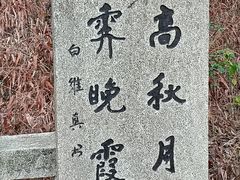 高秋月
霁晚霞
白雅真书